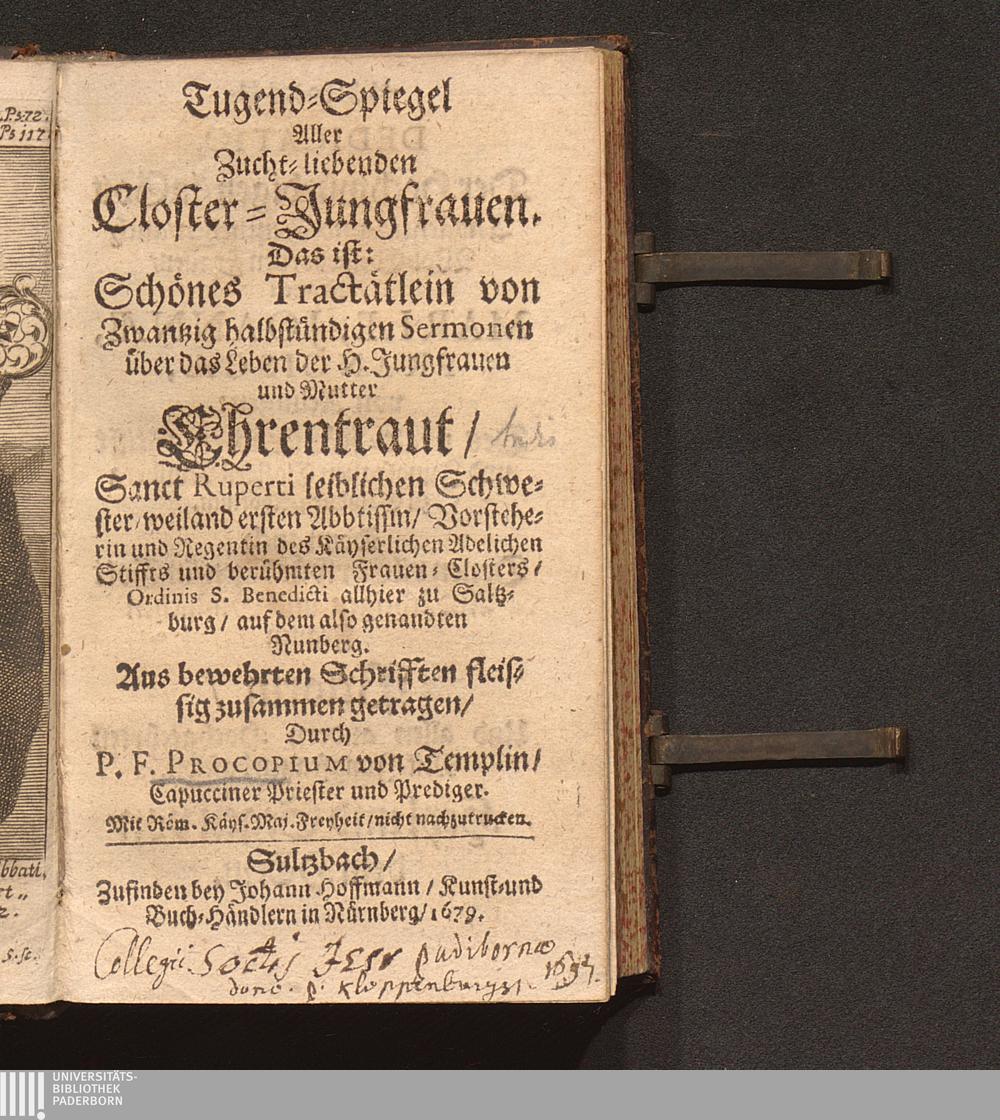 Ps. 72.
Ps 117
Tugend-Spiegel
Aller
Zucht-liebenden
Closter-Jungfrauen.
Das ist:
Schönes Tractätlein von
Zwantzig halbstündigen Sermonen
über das Leben der H. Jungfrauen
und Mutter
Ehrentraut /
Sanct Ruperti leiblichen Schwe-
ster/ weiland ersten Abbtissin/ Vorstehe-
rin und Regentin des Käyserlichen Adelichen
Stiffts und berühmten Frauen-Closters /
Ordinis S. Benedicti allhier zu Saltz-
burg / auf dem also genandten
Nunberg.
Aus bewehrten Schrifften fleis-
sig zusammen getragen/
Durch
P. F. PROCOPIUM von Templin/
Capucciner Priester und Prediger.
Mit Röm. Käys. Maj. Freyheit/ nicht nachzutrucken.
Sultzbach /
Zufinden bey Johann Hoffmann / Kunst-und
Buch-Händlern in Nürnberg/ 1679.
Collegii Soctis Jesu padibornæ
dono. p.
bbati,
2.
UNIVERSITÄTS-
BIBLIOTHEK
PADERBORN